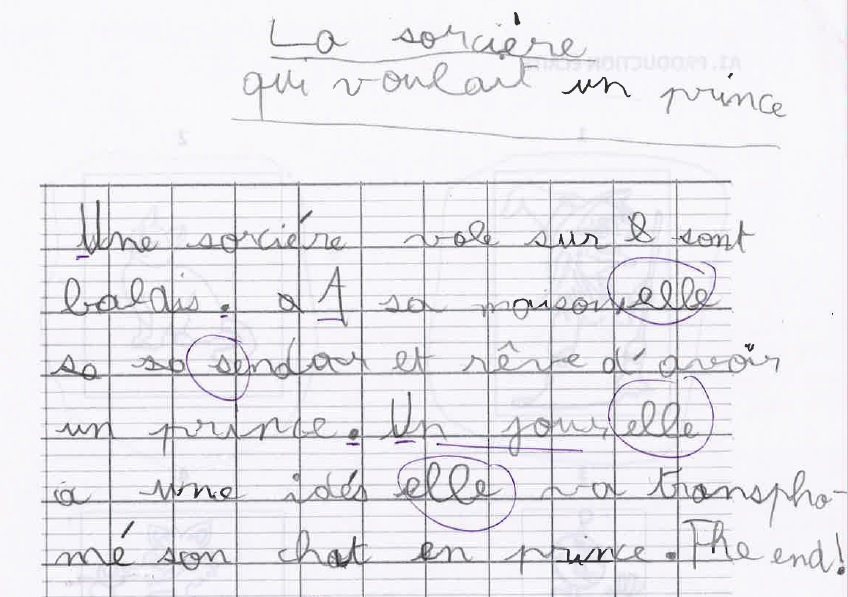 La sorciére
qui voulait un prince
Une sorciére vole sur sont
balais. A sa maison elle
sendor et rêve d'avoir
un prince. Un jour elle
a une idés elle va transpho-
mé son chat en prince. The end!